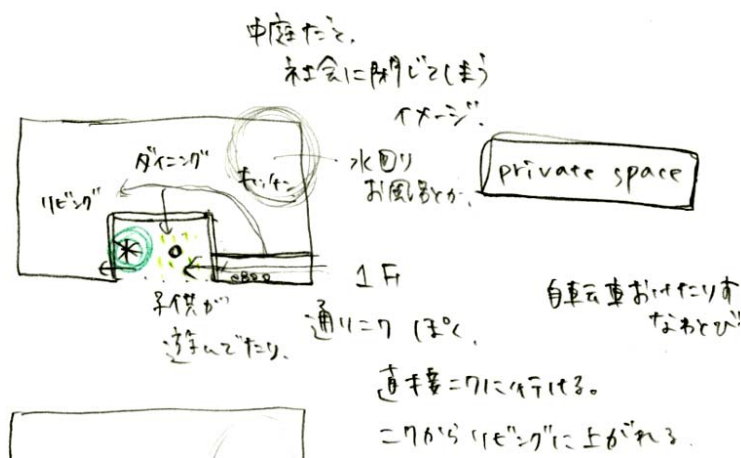 中庭だと、
社会に閉じてしまう
イメージ.
ダイニング
キッチン
リビング
水回り
お風呂とか.
private space
1F
子供が
遊んでたり.
通りニワ ぽく.
自転車おけたりす
なわとび
直接ニワに行ける。
ニワからリビングに上がれる.